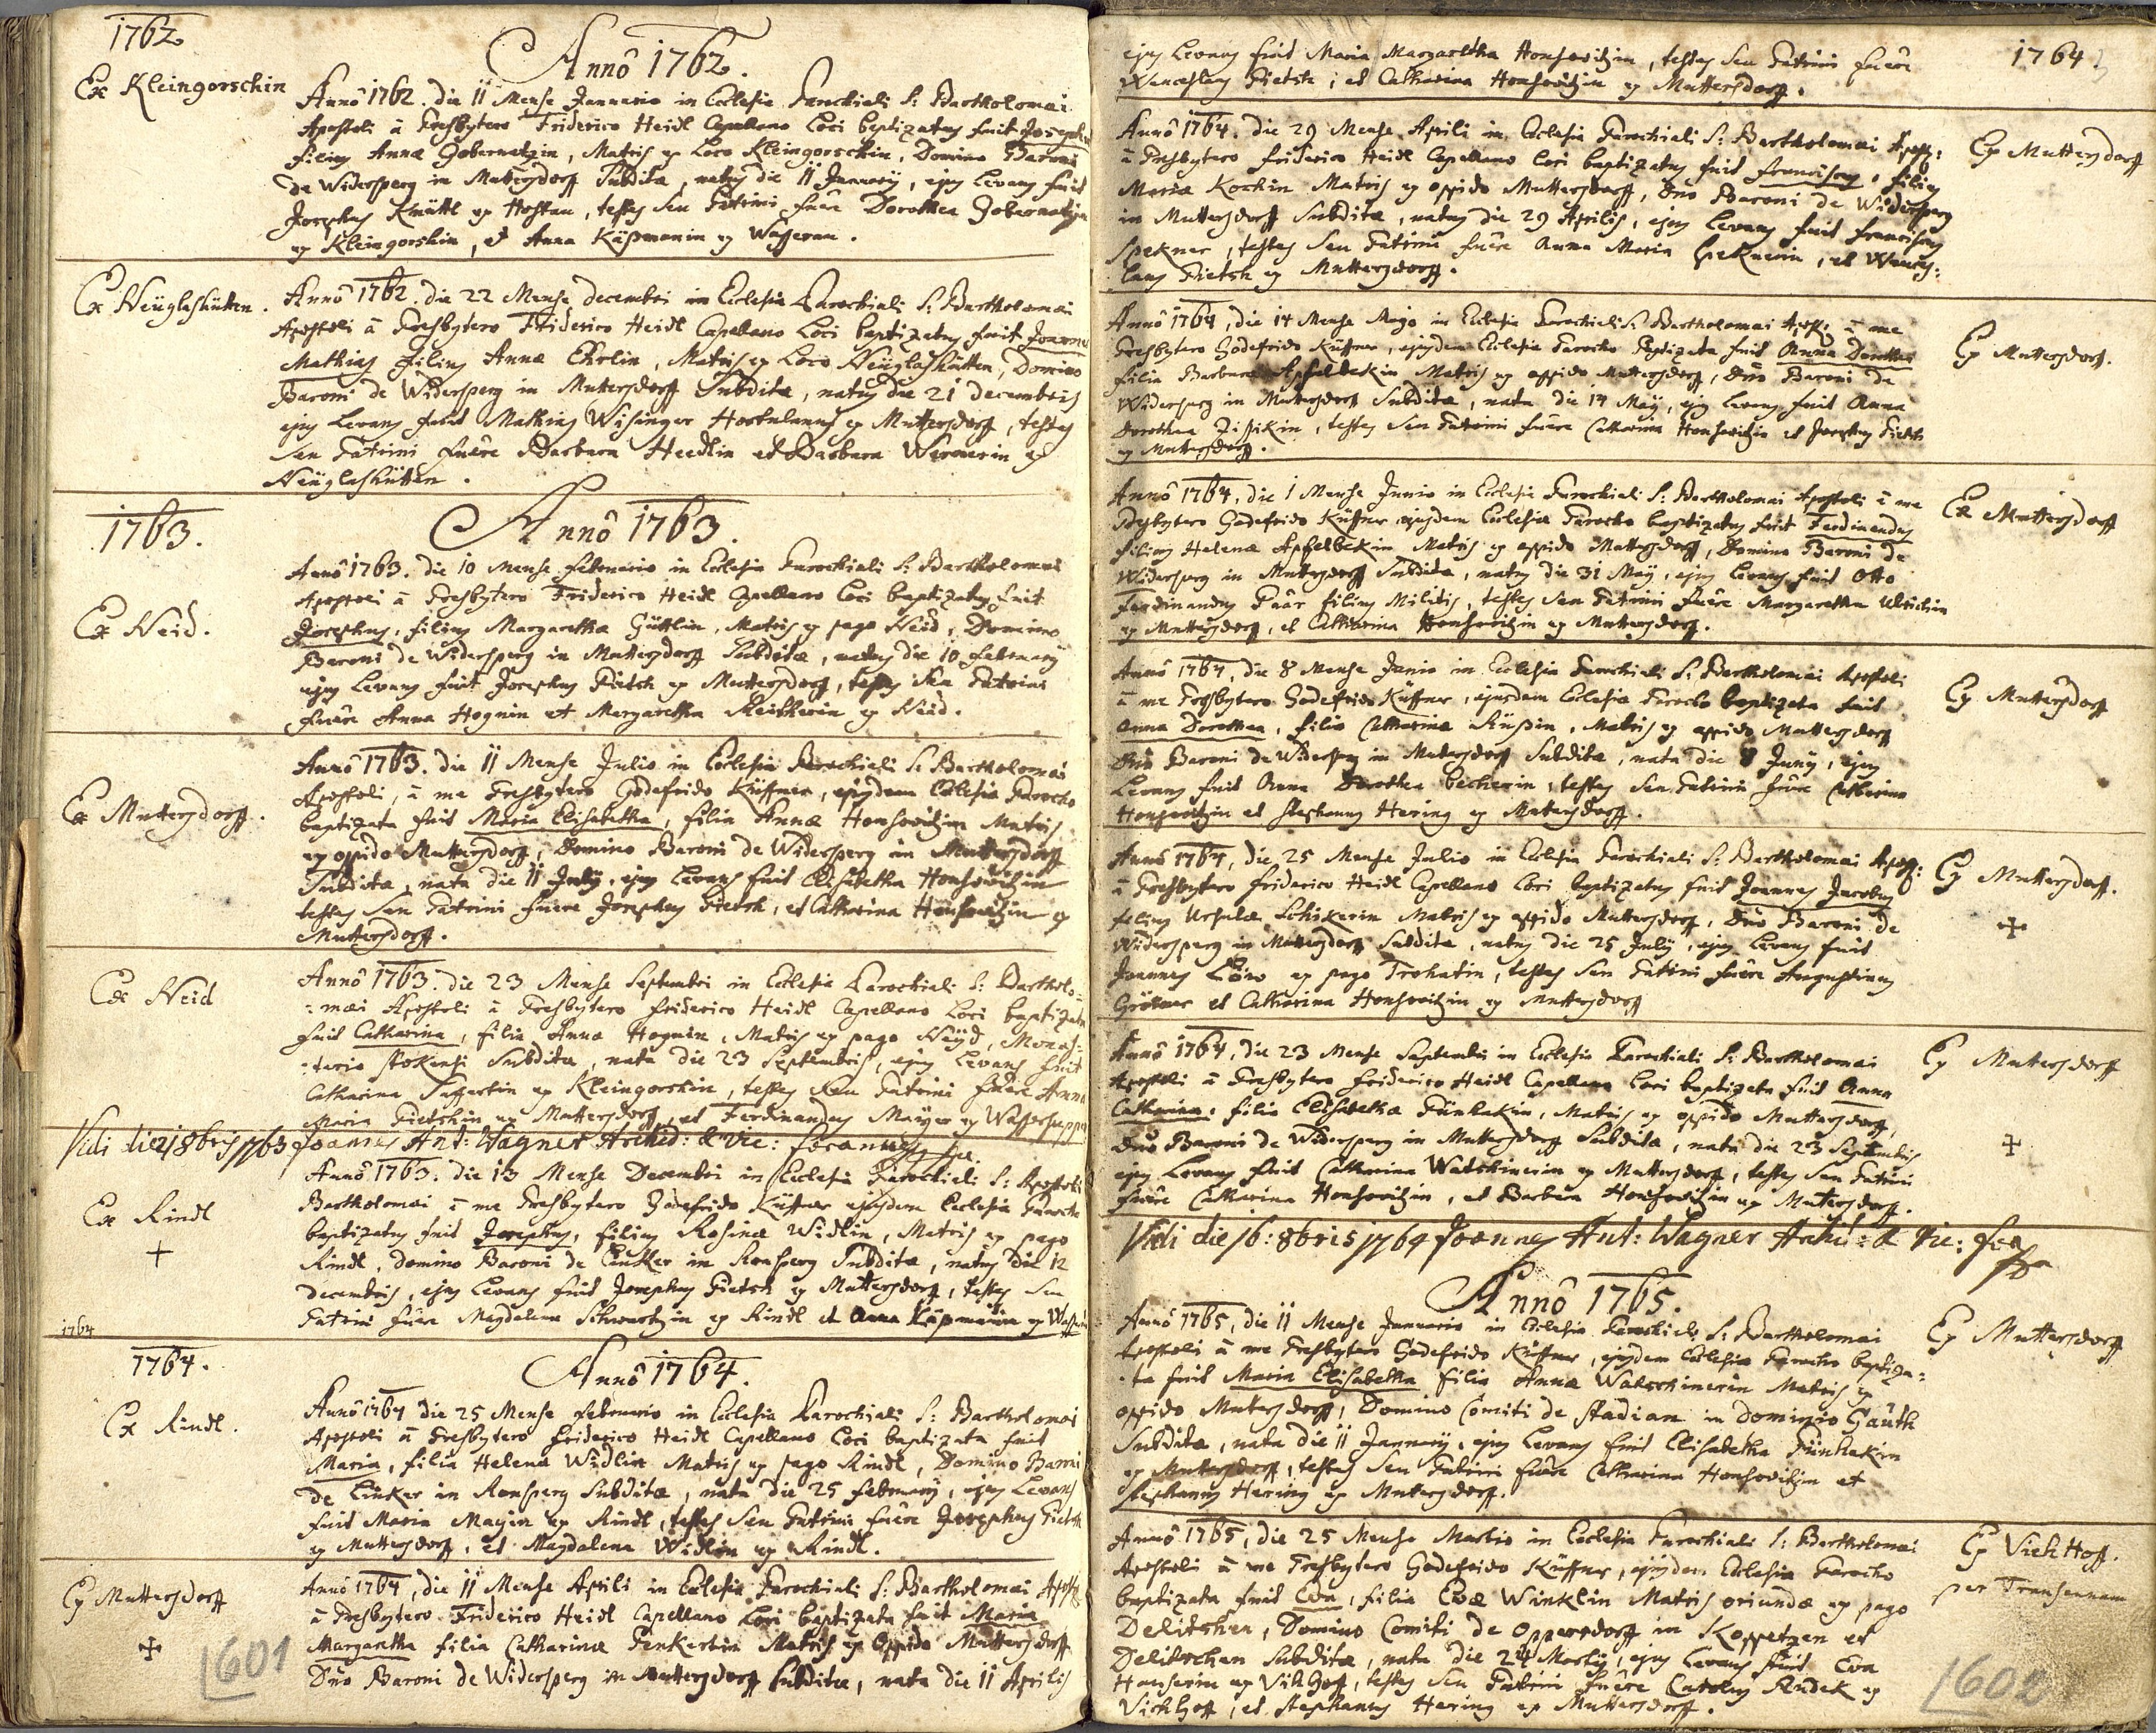 1762
Annô 1762.
Ex Kleingorschin
Annô 1762. die 11 Mense Januario in Ecclesia Parochiali S: Bartholomæi
Apostoli â Presbytero Friderico Heidl Capellano Loci baptizatus fuit Josephus
filius Annæ Gobernatzin, Matris ex Loco Kleingorschin, Domino Baroni
de Widersperg in Muttersdorff Subditæ, natus die 11 Januarij, ejus Levans fuit
Josephus Knüttl ex Hostau, testes seu Patrini fuêre Dorothea Gobernatzin
ex Kleingorschin, et Anna Käpmanin ex Wasserau.
Ex Neüglashütten.
Annô 1762. die 22 Mense decembri in Ecclesia Parochiali S: Bartholomæi
Apostoli â Presbytero Friderico Heidl Capellano Loci baptizatus fuit Joannes
Mathias filius Annæ Ehrlin, Matris ex Loco Neüglashütten, Domino
Baroni de Widersperg in Muttersdorff Subditæ, natus die 21 decembris
ejus Levans fuit Mathias Wisinger Hortulanus ex Muttersdorff, testes
seu Patrini fuêre Barbara Heedlin et Barbara Wernerin ex
Neüglashütten.
1763.
Annô 1763.
Ex Neid.
Annô 1763. die 10 Mense Februario in Ecclesia Parochiali S: Bartholomæi
Apostoli â Presbytero Friderico Heidl Capellano Loci baptizatus fuit
Josephus, filius Margarethæ Güttlin, Matris ex pago Neid, Domino
Baroni de Widersperg in Muttersdorff Subditæ, natus die 10 februarij
ejus Levans fuit Josephus Pietsch ex Muttersdorff, testes seu Patrini
fuêre Anna Hognin et Margaretha ex Neid.
Ex Muttersdorff.
Annô 1763. die 11 Mense Julio in Ecclesia Parochiali S: Bartholomæi
Apostoli, â me Presbytero Godefrido Küffner, ejusdem Ecclesiæ Parocho
baptizata fuit Maria Elisabetha, filia Annæ Honsowitzin Matris
ex oppido Muttersdorff, Domino Baroni de Widersperg in Muttersdorff
Subditæ, nata die 11 July, ejus Levans fuit Elisabetha Honsowitzin
testes seu Patrini fuere Josephus Pietsch, et Catharina Honsowitzin ex
Muttersdorff.
Ex Neid
Annô 1763. die 23 Mense Septembri in Ecclesia Parochiali S: Bartholo=
=mæi Apostoli â Presbytero Friderico Heidl Capellano Loci baptizata
fuit Catharina, filia Annæ Hognin, Matris ex pago Neyd, Monas=
=terio Stokensi Subditæ, nata die 23 Septembris, ejus Levans fuit
Catharina ex Kleingorschin, testes seu Patrini fuêre Anna
Maria Pietschin ex Muttersdorff, et Ferdinandus Mayer ex Wassersuppen
Vidi die 21 8bris 1763 Joannes Ant: Wagner Archid: & Vic: foraneus
Ex Rindl
Annô 1763. die 13 Mense Decembri in Ecclesia Parochiali S: Apostoli
Bartholomæi, â me Presbytero Godefrido Küffner ejusdem Ecclesiæ Parocho
baptizatus fuit Josephus, filius Rosinæ Widlin, Matris ex pago
Rindl, Domino Baroni de Linker in Ronsperg Subditæ, natus die 12
decembris, ejus Levans fuit Josephus Pietsch ex Muttersdorff, testes seu
Patrini fuêre Magdalena Schwartzin ex Rindl et Anna Käpmanin ex
1764
1764.
Annô 1764.
Ex Rindl.
Annô 1764 die 25 Mense Februario in Ecclesia Parochiali S: Bartholomæi
Apostoli â Presbytero Friderico Heidl Capellano Loci baptizata fuit
Maria, filia Helenæ Widlin Matris ex pago Rindl, Domino Baroni
de Linker in Ronsperg Subditæ, nata die 25 februarij, ejus Levans
fuit Maria Mayin ex Rindl, testes seu Patrini fuêre Josephus Pietsch
ex Muttersdorff, et Magdalena Widlin ex Rindl.
Ex Muttersdorff
Annô 1764, die 11 Mense Aprili in Ecclesia Parochiali S: Bartholomæi Apost:
â Presbytero Friderico Heidl Capellano Loci baptizata fuit Maria
Margaretha filia Catharinæ Penkertin Matris ex Oppido Muttersdorff
Dño Baroni de Widersperg in Muttersdorff Subditæ, nata die 11 Aprilis
1601
1764.
ejus Levans fuit Maria Margaretha Honsowitzin, testes seu Patrini fuêre
Wenceslaus Pietsch, et Catharina Honsowitzin ex Muttersdorff.
Ex Muttersdorff
Annô 1764. die 29 Mense Aprili in Ecclesia Parochiali S: Bartholomæi Apost:
â Presbytero Friderico Heidl Capellano Loci baptizatus fuit Franciscus, filius
Mariæ Kochin Matris ex oppido Muttersdorff, Dño Baroni de Widersperg
in Muttersdorff Subditæ, natus die 29 Aprilis, ejus Levans fuit Franciscus
Spekner, testes seu Patrini fuêre Anna Maria Speknerin, et Wences=
laus Pietsch ex Muttersdorff.
Ex Muttersdorff.
Annô 1764, die 14 Mense Majo in Ecclesia Parochiali S: Bartholomæi Apost: â me
Presbytero Godefrido Küffner, ejusdem Ecclesiæ Parocho baptizata fuit Anna Dorothea
filia Barbaræ Apfelbekin Matris ex oppido Muttersdorff, Dño Baroni de
Widersperg in Muttersdorff Subditæ, nata die 14 May, ejus Levans fuit Anna
Dorothea Zischkin, testes seu Patrini fuêre Catharina Honsowitzin et Josephus Pietsch
ex Muttersdorff.
Ex Muttersdorff
Annô 1764, die 1 Mense Junio in Ecclesia Parochiali S: Bartholomæi Apostoli â me
Presbytero Godefrido Küffner ejusdem Ecclesiæ Parocho baptizatus fuit Ferdinandus
filius Helenæ Apfelbekin Matris ex oppido Muttersdorff, Domino Baroni de
Widersperg in Muttersdorff Subditæ, natus die 31 May, ejus Levans fuit Otto
Ferdinandus Paar filius Militis, testes seu Patrini fuêre Margaretha Ulrichin
ex Muttersdorff, et Catharina Honsowitzin ex Muttersdorff.
Ex Muttersdorff
Annô 1764, die 8 Mense Junio in Ecclesia Parochiali S: Bartholomæi Apostoli
â me Presbytero Godefrido Küffner, ejusdem Ecclesiæ Parocho baptizata fuit
Anna Dorothea, filia Catharinæ, Matris ex oppido Muttersdorff
Dño Baroni de Widersperg in Muttersdorff Subditæ, nata die 8 Juny, ejus
Levans fuit Anna Dorothea becherin, testes seu Patrini fuêre Catharina
Honsowitzin et Stephanus Hering ex Muttersdorff.
Ex Muttersdorff.
Annô 1764, die 25 Mense Julio in Ecclesia Parochiali S: Bartholomæi Apost:
â Presbytero Friderico Heidl Capellano Loci baptizatus fuit Joannes Jacobus
filius Ursulæ Schikerin Matris ex oppido Muttersdorff, Dño Baroni de
Widersperg in Muttersdorff Subditæ, natus die 25 July, ejus Levans fuit
Joannes Löw ex pago Trohatin, testes seu Patrini fuêre Augustinus
et Catharina Honsowitzin ex Muttersdorff
Ex Muttersdorff
Annô 1764, die 23 Mense Septembri in Ecclesia Parochiali S: Bartholomæi
Apostoli â Presbytero Friderico Heidl Capellano Loci baptizata fuit Anna
Catharina, filia Elisabethæ Fünkekin, Matris ex oppido Muttersdorff,
Dño Baroni de Widersperg in Muttersdorff Subditæ, nata die 23 Septembris
ejus Levans fuit Catharina Watschinerin ex Muttersdorff, testes seu Patrini
fuêre Catharina Honsowitzin, et Barbara Honsowitzin ex Muttersdorff.
Vidi die 16: 8bris 1764 Joannes Ant: Wagner Archid: & Vic: for
Annô 1765.
Ex Muttersdorff
Annô 1765, die 11 Mense Januario in Ecclesia Parochiali S: Bartholomæi
Apostoli â me Presbytero Godefrido Küffner, ejusdem Ecclesiæ Parocho baptiza=
=ta fuit Maria Elisabetha filia Annæ Watschinerin Matris ex
oppido Muttersdorff, Domino Comiti de Stadian in dominio Gäuth
Subditæ, nata die 11 Januarij, ejus Levans fuit Elisabetha Fünkekin
ex Muttersdorff, testes seu Patrini fuêre Catharina Honsowitzin et
Stephanus Hering ex Muttersdorff.
Ex Viehhoff.
per Transennam
Annô 1765, die 25 Mense Martio in Ecclesia Parochiali S: Bartholomæi
Apostoli â me Presbytero Godefrido Küffner, ejusdem Ecclesiæ Parocho
baptizata fuit Eva, filia Evæ Winklin Matris oriundæ ex pago
Delitschen, Domino Comiti de Oppersdorff in Koppetzen et
Delitschen Subditæ, nata die 24 Martij, ejus Levans fuit Eva
Hanserin ex Viehhoff, testes seu Patrini fuêre Carolus Rudek ex
Viehhoff, et Stephanus Hering ex Muttersdorff.
1602